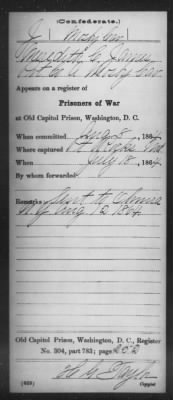 (Confederate.)
J Mosby Cav
Jas
Co. A Mosby Cav
Appears on a register of
Prisoners of War
at Old Capitol Prison, Washington, D. C.
When committed Aug 3, 1864
Where captured Pt of Rocks Md.
When July 18, 1864
By whom forwarded
Remarks Sent to Elmira
N.Y. Aug 12 1864.
Old Capitol Prison, Washington, D. C., Register
No. 304, part 783; page 252
(639)
Copyist